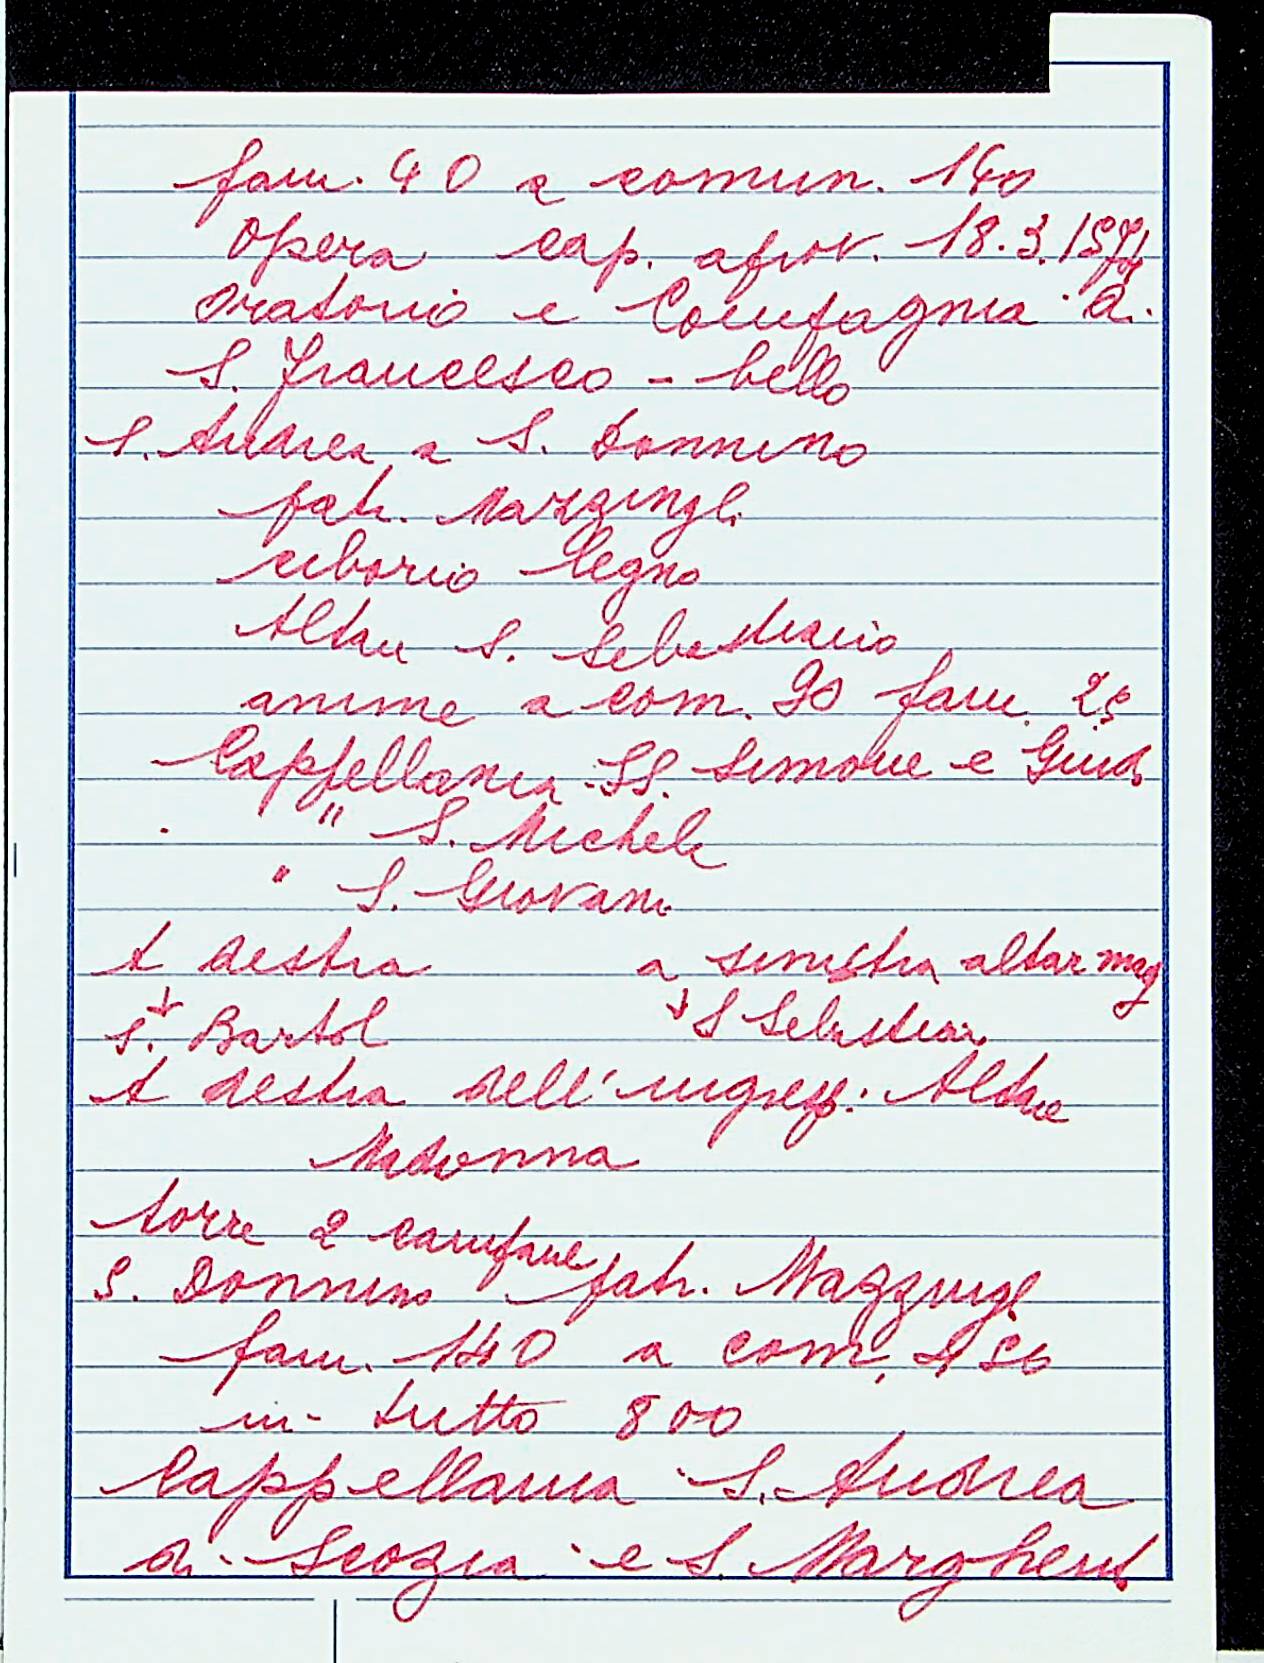 fam. 40 a comun. 140
Opera cap. aprov. 18.3.1571
Oratorio e Compagnia di
S. Francesco - bello
S. Andrea a S. Donnino
patr. Mazzingli
ciborio legno
Altare S. Sebastiano
anime a com. 90 fam. 25
Cappellania SS. Simone e Giuda
" S. Michele
" S. Giovani
A destra a sinistra altar mag
↓ ↓
S. Bartol S Sebastian
A destra dell'ingresso: Altare
Madonna
torre 2 campane
S. Donnino patr. Mazzingl
fam. 140 a com. 450
in tutto 800
Cappellania S. Andrea
di Scozia e S. Margherit